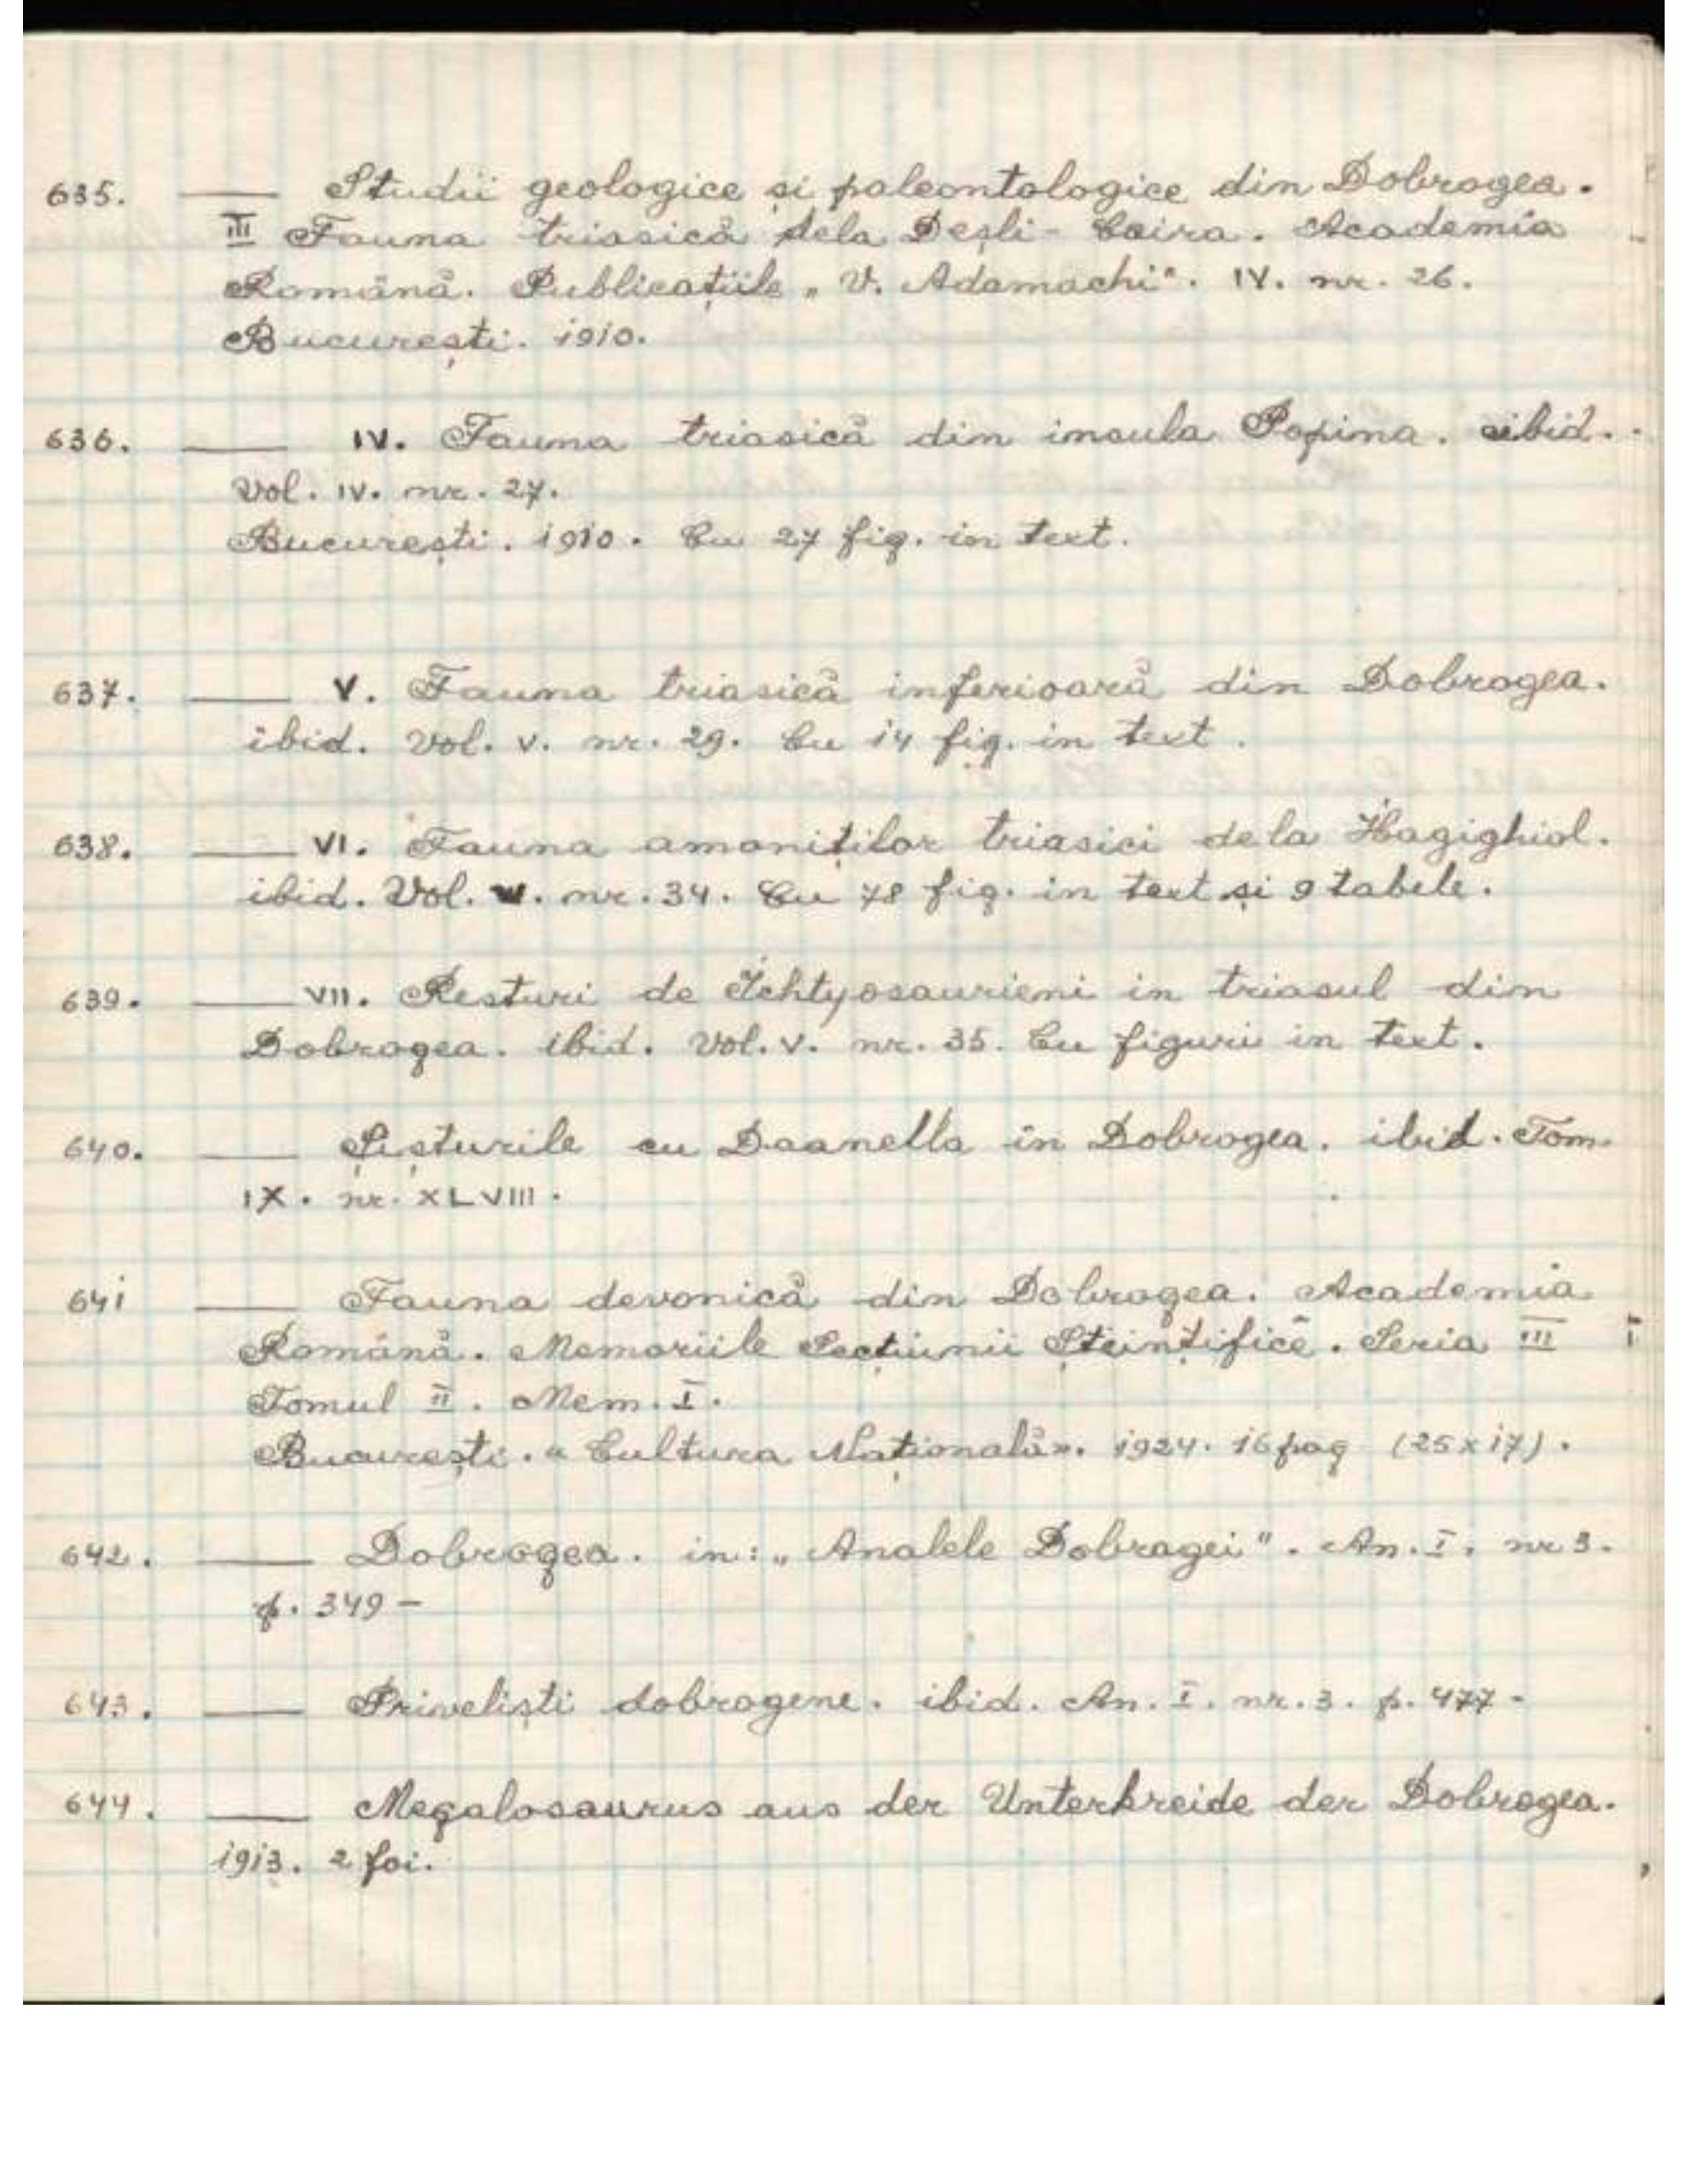 635. —— Studii geologice și paleontologice din Dobrogea.
III Fauna triasică dela Deșli-Caira. Academia
Română. Publicațiile „V. Adamachi". IV. nr. 26.
București. 1910.
636. —— IV. Fauna triasică din insula Popina. ibid.
Vol. IV. nr. 27.
București. 1910. Cu 27 fig. in text.
637. —— V. Fauna triasică inferioară din Dobrogea.
ibid. Vol. V. nr. 29. Cu 14 fig. in text.
638. —— VI. Fauna amoniților triasici dela Hagighiol.
ibid. Vol. V. nr. 34. Cu 78 fig. in text și 9 tabele.
639. —— VII. Resturi de Ichtyosaurieni in triasul din
Dobrogea. ibid. Vol. V. nr. 35. Cu figuri in text.
640. —— Șisturile cu Daanella in Dobrogea. ibid. Tom.
IX. nr. XLVIII.
641 —— Fauna devonică din Dobrogea. Academia
Română. Memoriile Secțiunii Șteințifice. Seria III
Tomul II. Mem. I.
București. «Cultura Națională». 1924. 16 pag (25x17).
642. —— Dobrogea. in: „Analele Dobrogei". An. I. nr 3.
p. 349 –
643. —— Priveliști dobrogene. ibid. An. I. nr. 3. p. 477 -
644. —— Megalosaurus aus der Unterkreide der Dobrogea.
1913. 2 foi.